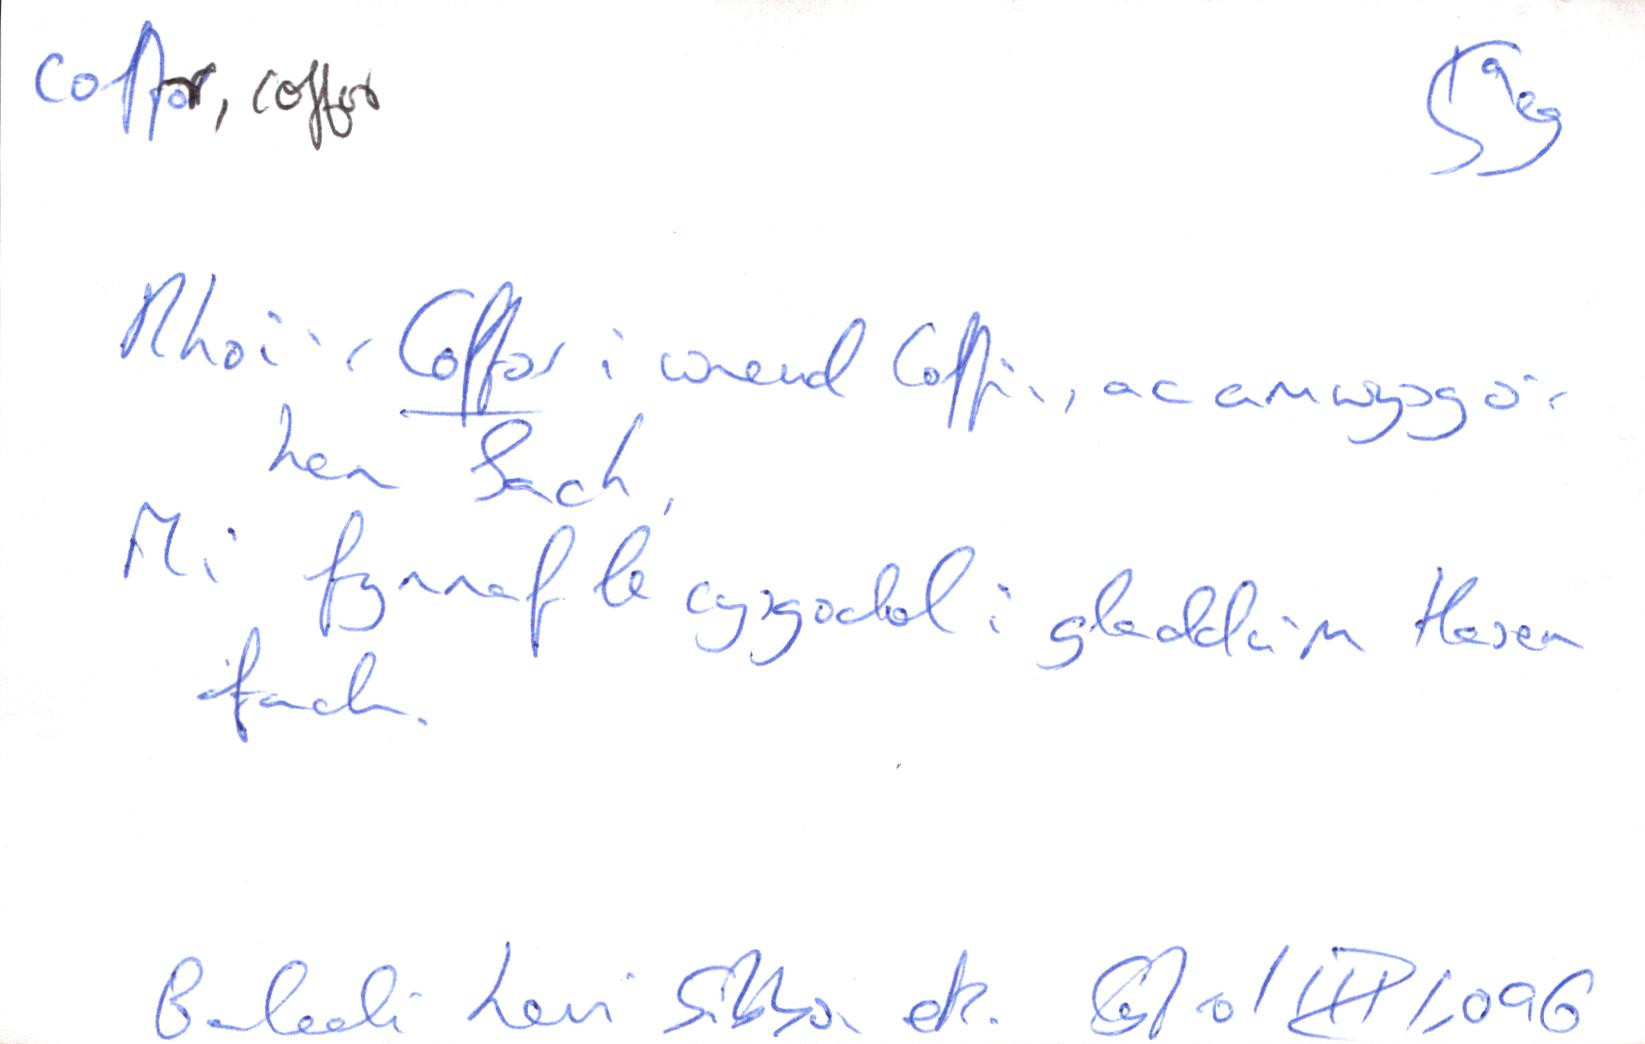 Coffor, coffor
Rhoi'r Coffor i wneud Coffin, ac amwysg o'r
hen Sach,
Mi fynnaf le cysgodol i gladdu'm Hasen
fach.
Baledi Levi Gibbon etc. 1,096